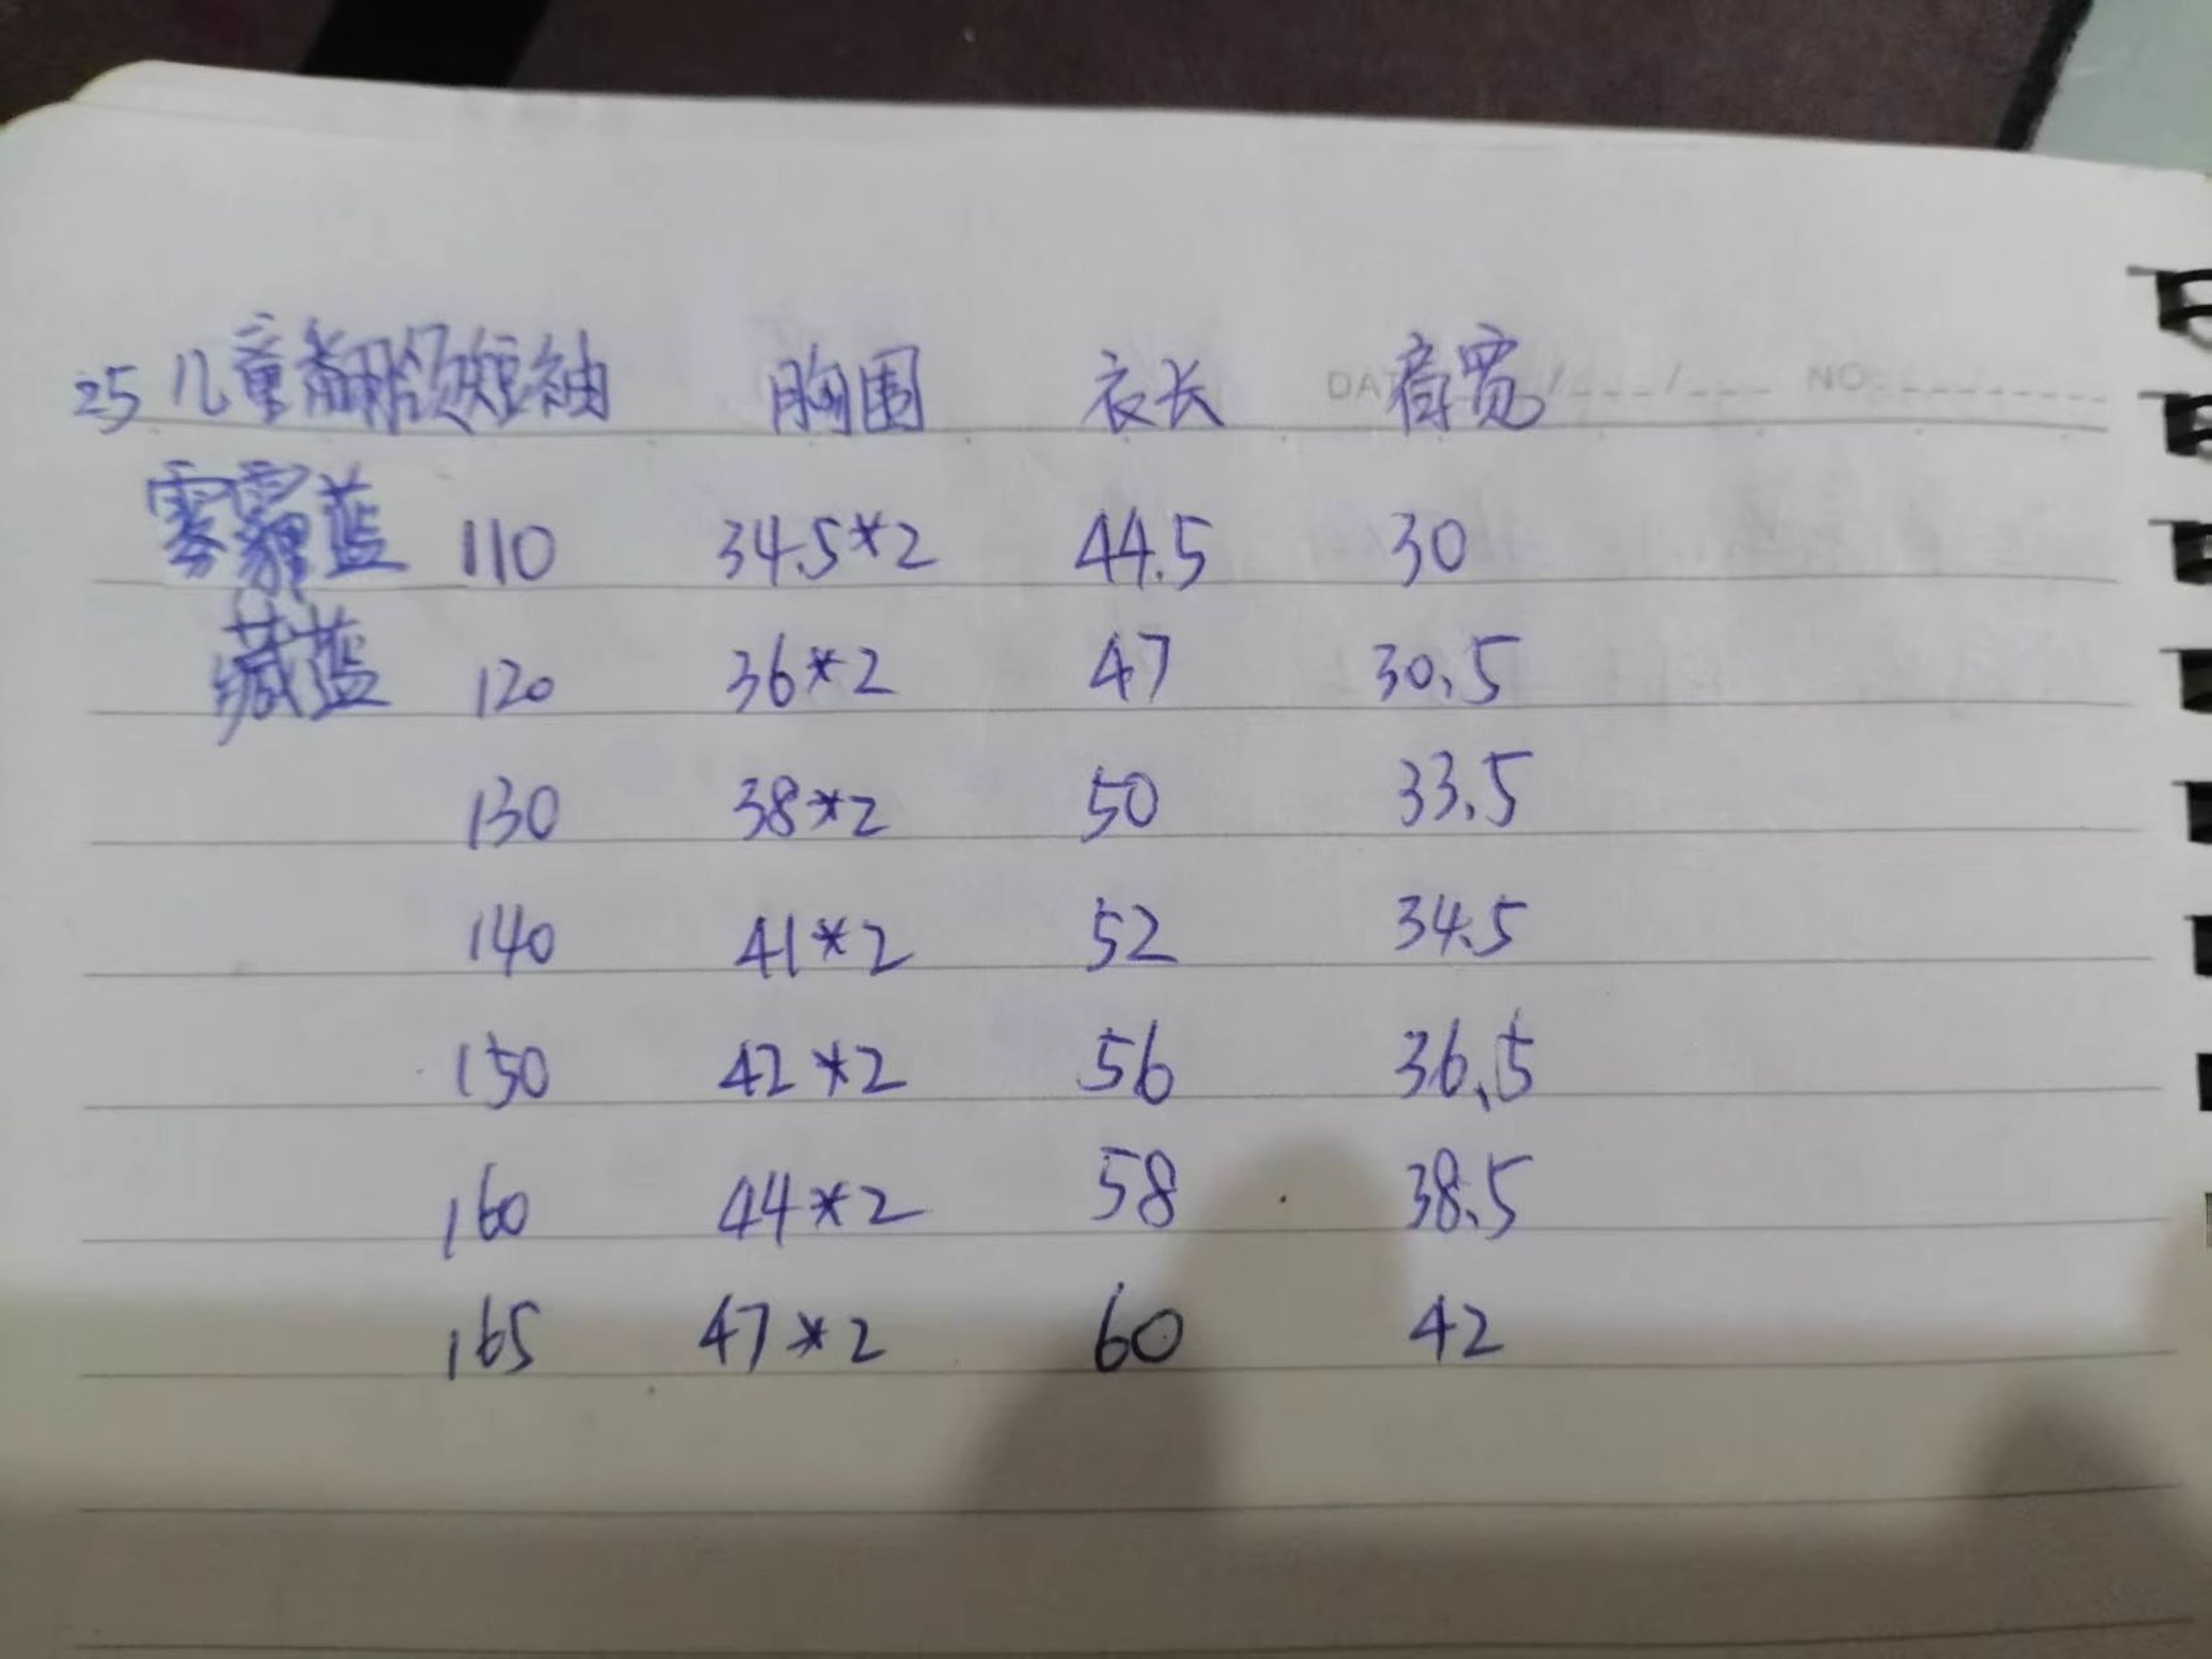 25 儿童翻领短袖 胸围 衣长 肩宽
DATE / / NO.
雾霾蓝 110 34.5*2 44.5 30
藏蓝 120 36*2 47 30.5
130 38*2 50 33.5
140 41*2 52 34.5
150 42*2 56 36.5
160 44*2 58 38.5
165 47*2 60 42